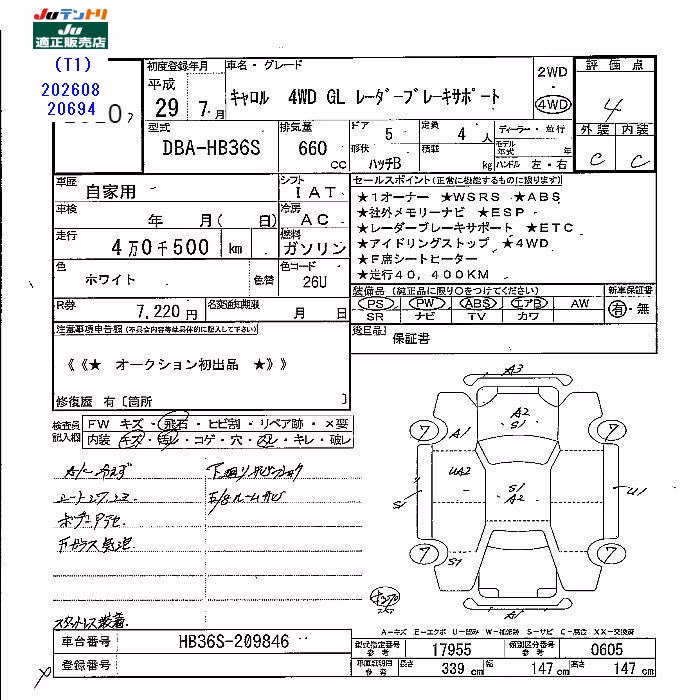 Juテントリ
Ju
適正販売店
(T1)
202608
20694
初度登録年月
平成
29年 7月
車名・グレード
キャロル 4WD GL レーダーブレーキサポート
2WD
・
4WD
評価点
4
外装 内装
C C
型式
DBA-HB36S
排気量
660 CC
ドア 5
形状 ハッチB
定員 4人
積載 kg
ディーラー・並行
モデル年式 年
ハンドル 左・右
車歴
自家用
シフト
IAT
車検
年 月( 日)
冷房
AC
走行
4万0千500 km
燃料
ガソリン
色
ホワイト
色替
色コード
26U
R券
7,220円
名変通知期限
月 日
セールスポイント(正常に機能するものに限ります)
★1オーナー ★WSRS ★ABS
★社外メモリーナビ ★ESP
★レーダーブレーキサポート ★ETC
★アイドリングストップ ★4WD
★F席シートヒーター
★走行40,400KM
装備品(純正品に限り○をつけてください)
新車保証書
PS PW ABS エアB AW
有・無
SR ナビ TV カワ
後日品
保証書
注意事項申告欄(不具合内容等は具体的に記入して下さい)
《《★ オークション初出品 ★》》
修復歴 有〔箇所 〕
検査員記入欄
FW キズ・飛石・ヒビ割・リペア跡・×要
内装 キズ・汚レ・コゲ・穴・スレ・キレ・破レ
スタットレス装着
A3
A2
S1
A1
7
7
UA2
S1
A2
S1
U1
7
7
S1
A1
A-キズ E-エクボ U-凹み W-補修跡 S-サビ C-腐食 XX-交換済
車台番号
HB36S-209846
登録番号
型式指定番号 参考
17955
類別区分番号 参考
0605
車検証明細 参考
長さ 339 cm
幅 147 cm
高さ 147 cm